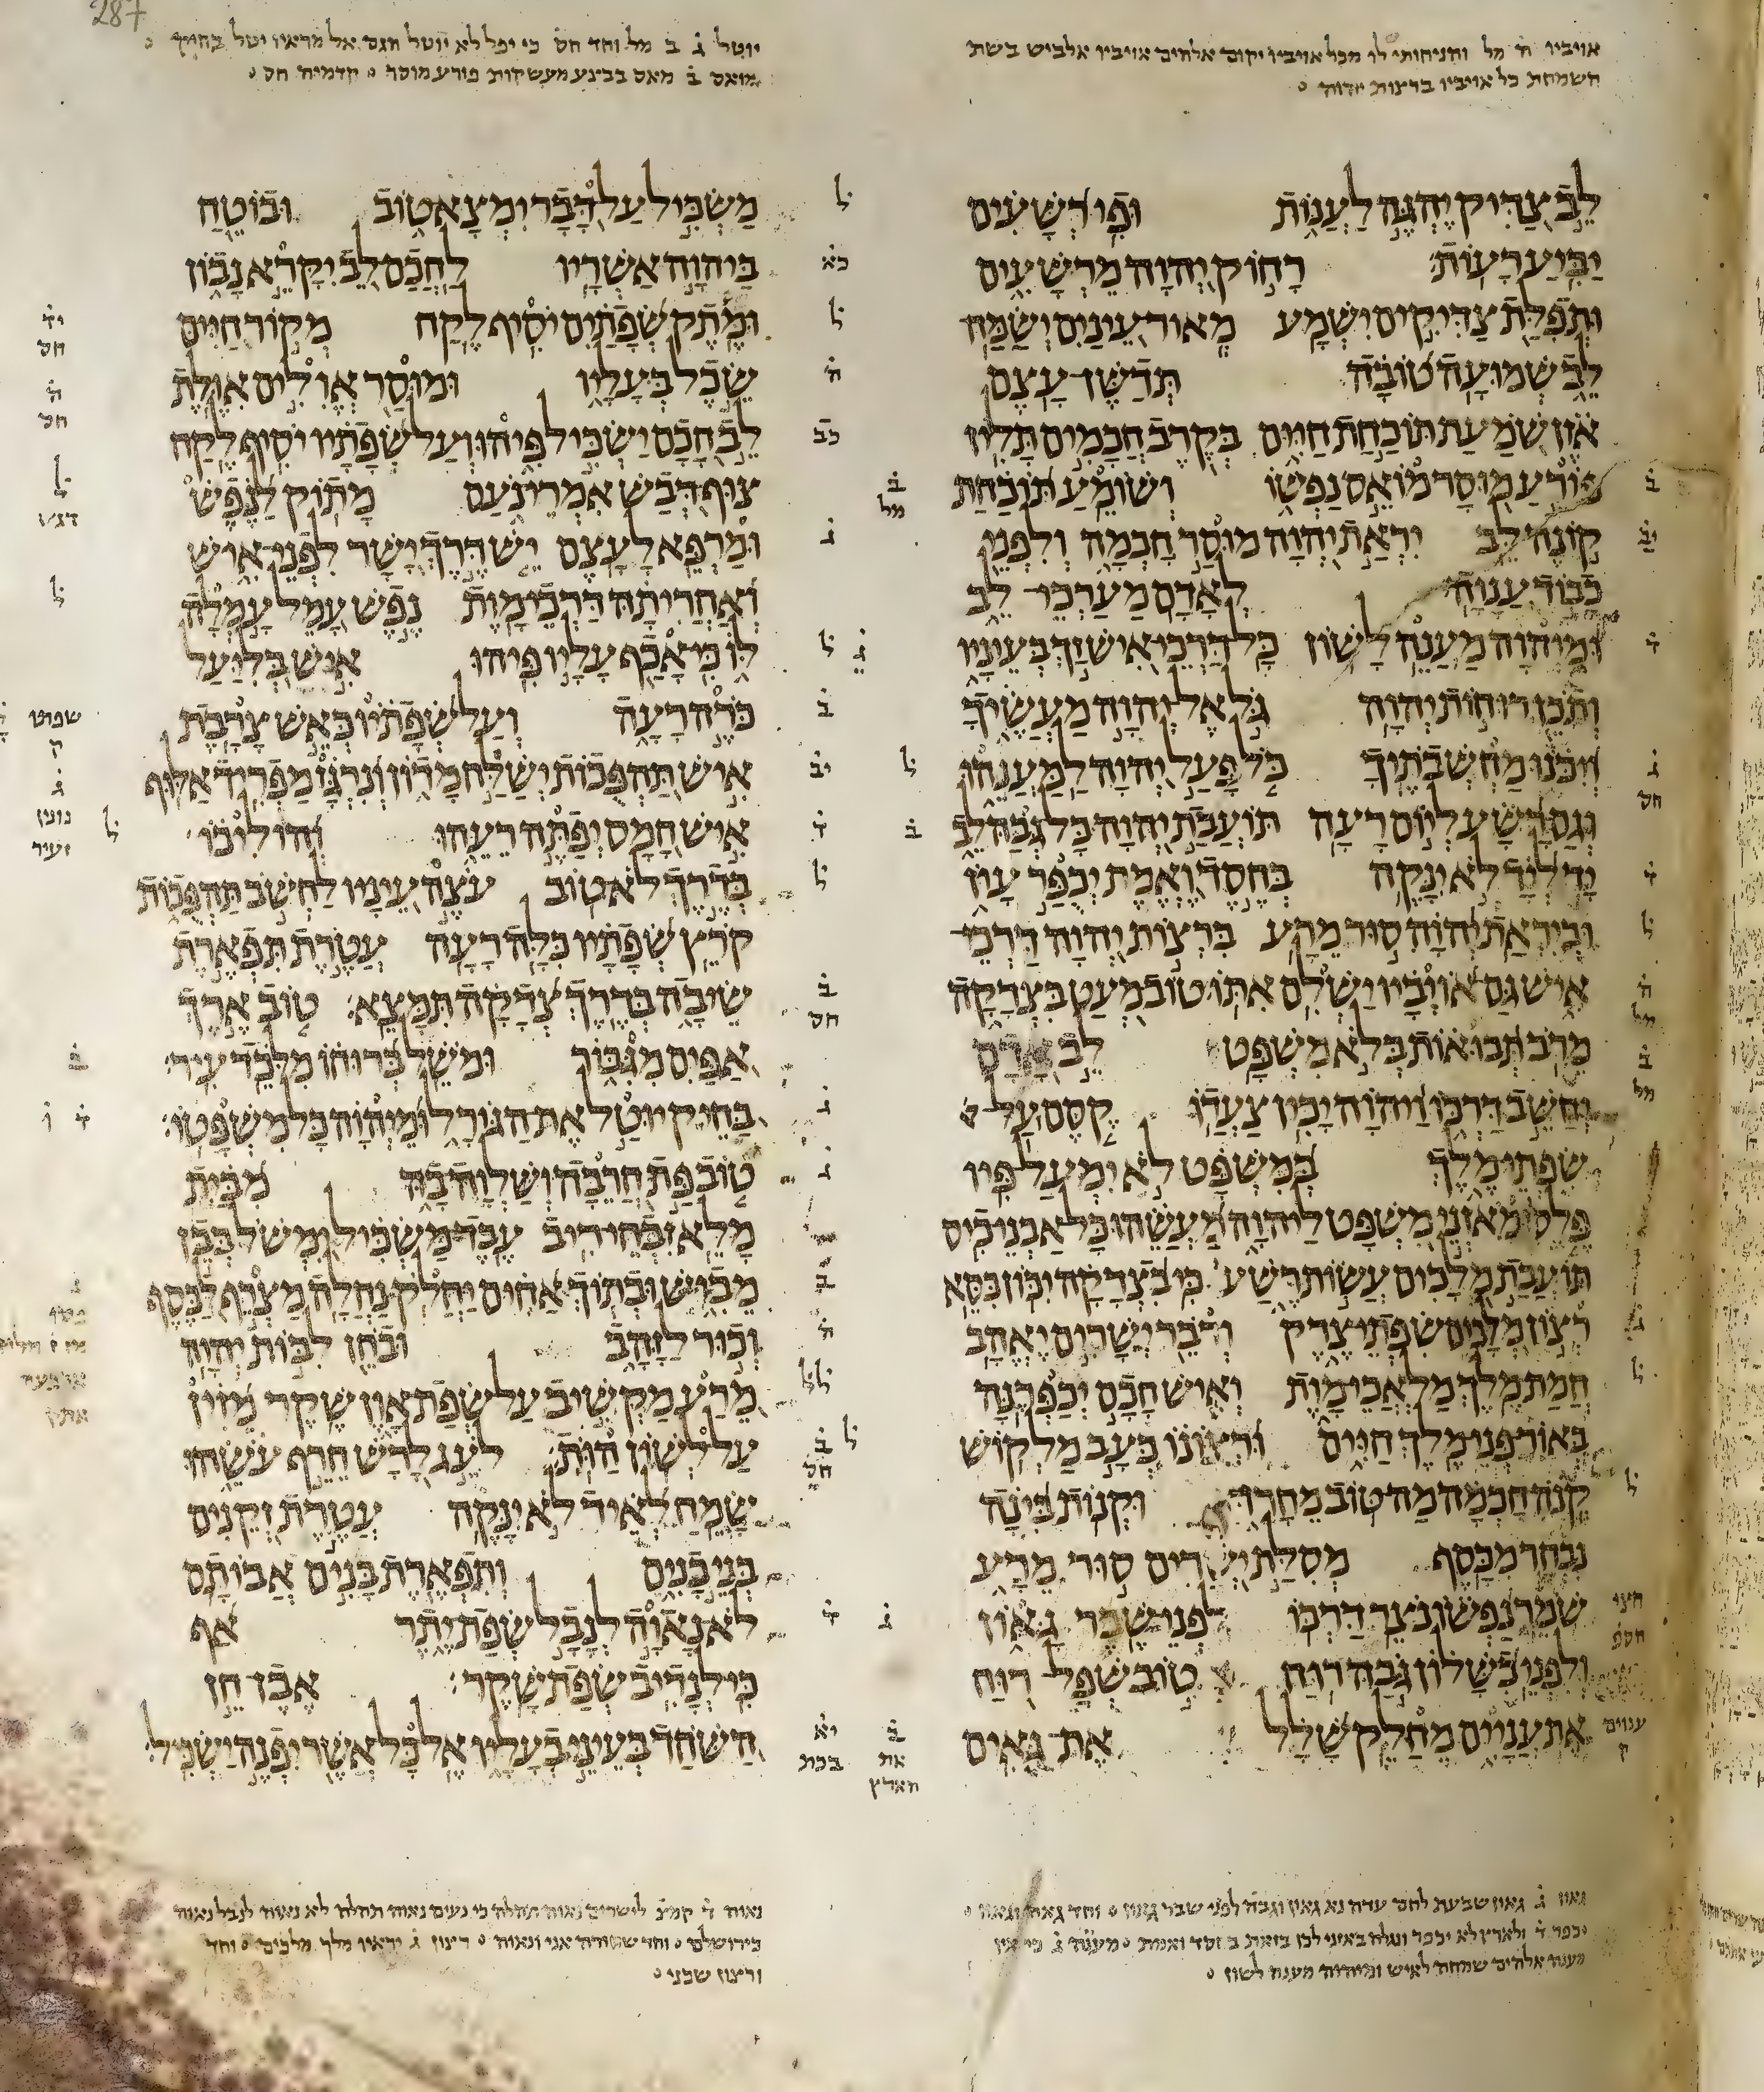 אויביו ה מל והניחותי לו מכל אויביו יקום אלהים אויביו אלביש בשת
השמחת כל אויביו ברצות יהוה
לב צדיק יהגה לענות ופי רשעים
יביע רעות רחוק יהוה מרשעים
ותפלת צדיקים ישמע מאור עינים ישמח
לב שמועה טובה תדשן עצם
אזן שמעת תוכחת חיים בקרב חכמים תלין
פורע מוסר מואס נפשו ושומע תוכחת
קונה לב יראת יהוה מוסר חכמה ולפני
כבוד ענוה לאדם מערכי לב
ומיהוה מענה לשון כל דרכי איש זך בעיניו
ותכן רוחות יהוה גל אל יהוה מעשיך
ויכנו מחשבתיך כל פעל יהוה למענהו
וגם רשע ליום רעה תועבת יהוה כל גבה לב
יד ליד לא ינקה בחסד ואמת יכפר עון
וביראת יהוה סור מרע ברצות יהוה דרכי
איש גם אויביו ישלם אתו טוב מעט בצדקה
מרב תבואות בלא משפט לב אדם
יחשב דרכו ויהוה יכין צעדו קסם על
שפתי מלך במשפט לא ימעל פיו
פלס ומאזני משפט ליהוה מעשהו כל אבני כיס
תועבת מלכים עשות רשע כי בצדקה יכון כסא
רצון מלכים שפתי צדק ודבר ישרים יאהב
חמת מלך מלאכי מות ואיש חכם יכפרנה
באור פני מלך חיים ורצונו כעב מלקוש
קנה חכמה מה טוב מחרוץ וקנות בינה
נבחר מכסף מסלת ישרים סור מרע
שמר נפשו נצר דרכו לפני שבר גאון
ולפני כשלון גבה רוח טוב שפל רוח
את עניים מחלק שלל את גאים
גאון ג גאון שבעת לחם עדה נא גאון וגבה לפני שבר גאון וחד גאה וגאון
יכפר ד ולארץ לא יכפר ונגלה באזני לכן בזאת בחסד ואמת מענה ג כי אין
מענה אלהים שמחה לאיש ומיהוה מענה לשון
יוטל ג ב מל וחד חס כי יפל לא יוטל הגם אל מראיו יטל בחיק
מואס ב מאס בבצע מעשקות פורע מוסר קדמיה חס
משכיל על דבר ימצא טוב ובוטח
ביהוה אשריו לחכם לב יקרא נבון
ומתק שפתים יסיף לקח מקור חיים
שכל בעליו ומוסר אולים אולת
לב חכם ישכיל פיהו ועל שפתיו יסיף לקח
צוף דבש אמרי נעם מתוק לנפש
ומרפא לעצם יש דרך ישר לפני איש
ואחריתה דרכי מות נפש עמל עמלה
לו כי אכף עליו פיהו איש בליעל
כרה רעה ועל שפתיו כאש צרבת
איש תהפכות ישלח מדון ונרגן מפריד אלוף
איש חמס יפתה רעהו והוליכו
בדרך לא טוב עצה עיניו לחשב תהפכות
קרץ שפתיו כלה רעה עטרת תפארת
שיבה בדרך צדקה תמצא טוב ארך
אפים מגבור ומשל ברוחו מלכד עיר
בחיק יוטל את הגורל ומיהוה כל משפטו
טוב פת חרבה ושלוה בה מבית
מלא זבחי ריב עבד משכיל ימשל בבן
מביש ובתוך אחים יחלק נחלה מצרף לכסף
וכור לזהב ובחן לבות יהוה
מרע מקשיב על שפת און שקר מזין
על לשון הות לעג לרש חרף עשהו
שמח לאיד לא ינקה עטרת זקנים
בני בנים ותפארת בנים אבותם
לא נאוה לנבל שפת יתר אף
כי לנדיב שפת שקר אבן חן
השחד בעיני בעליו אל כל אשר יפנה ישכיל
נאוה ד קמצ לישרים נאוה תהלה כי נעים נאוה תהלה לא נאוה לנבל נאוה
כירושלם וחד שחורה אני ונאוה רצון ג יראיו מלך מלכים וחד
ורצון שכני
287